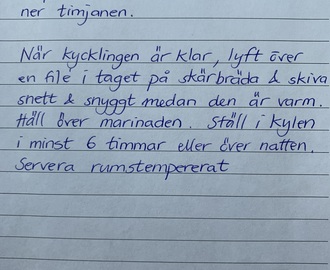 ner timjanen.
När kycklingen är klar, lyft över
en filé i taget på skärbräda & skiva
snett & snyggt medan den är varm.
Häll över marinaden. Ställ i kylen
i minst 6 timmar eller över natten.
Servera rumstempererat